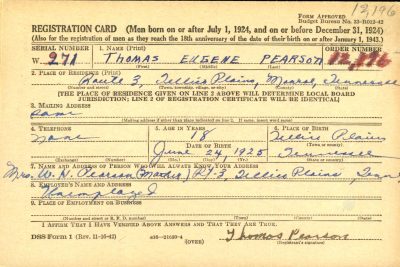 12,196
Form Approved
Budget Bureau No. 33-R012-42
REGISTRATION CARD (Men born on or after July 1, 1924, and on or before December 31, 1924)
(Also for the registration of men as they reach the 18th anniversary of the date of their birth on or after January 1, 1943.)
SERIAL NUMBER 1. NAME (Print) ORDER NUMBER
W 271 THOMAS EUGENE PEARSON 12,196
(First) (Middle) (Last)
2. PLACE OF RESIDENCE (Print)
Route 3, Tellico Plains, Monroe, Tennessee
(THE PLACE OF RESIDENCE GIVEN ON LINE 2 ABOVE WILL DETERMINE LOCAL BOARD
JURISDICTION; LINE 2 OF REGISTRATION CERTIFICATE WILL BE IDENTICAL)
3. MAILING ADDRESS
Same
(Mailing address if other than place indicated on line 2. If same, insert word same)
4. TELEPHONE 5. AGE IN YEARS 6. PLACE OF BIRTH
None 18 Tellico Plains
DATE OF BIRTH (Town or county)
June 24, 1925 Tennessee
7. NAME AND ADDRESS OF PERSON WHO WILL ALWAYS KNOW YOUR ADDRESS
Mrs. W. H. Pearson (Mother) Rt. 3, Tellico Plains, Tenn
8. EMPLOYER'S NAME AND ADDRESS
Unemployed
9. PLACE OF EMPLOYMENT OR BUSINESS
(Number and street or R. F. D. number) (Town) (County) (State)
I AFFIRM THAT I HAVE VERIFIED ABOVE ANSWERS AND THAT THEY ARE TRUE.
DSS Form 1 (Rev. 11-16-42) (OVER) Thomas Pearson
(Registrant's signature)